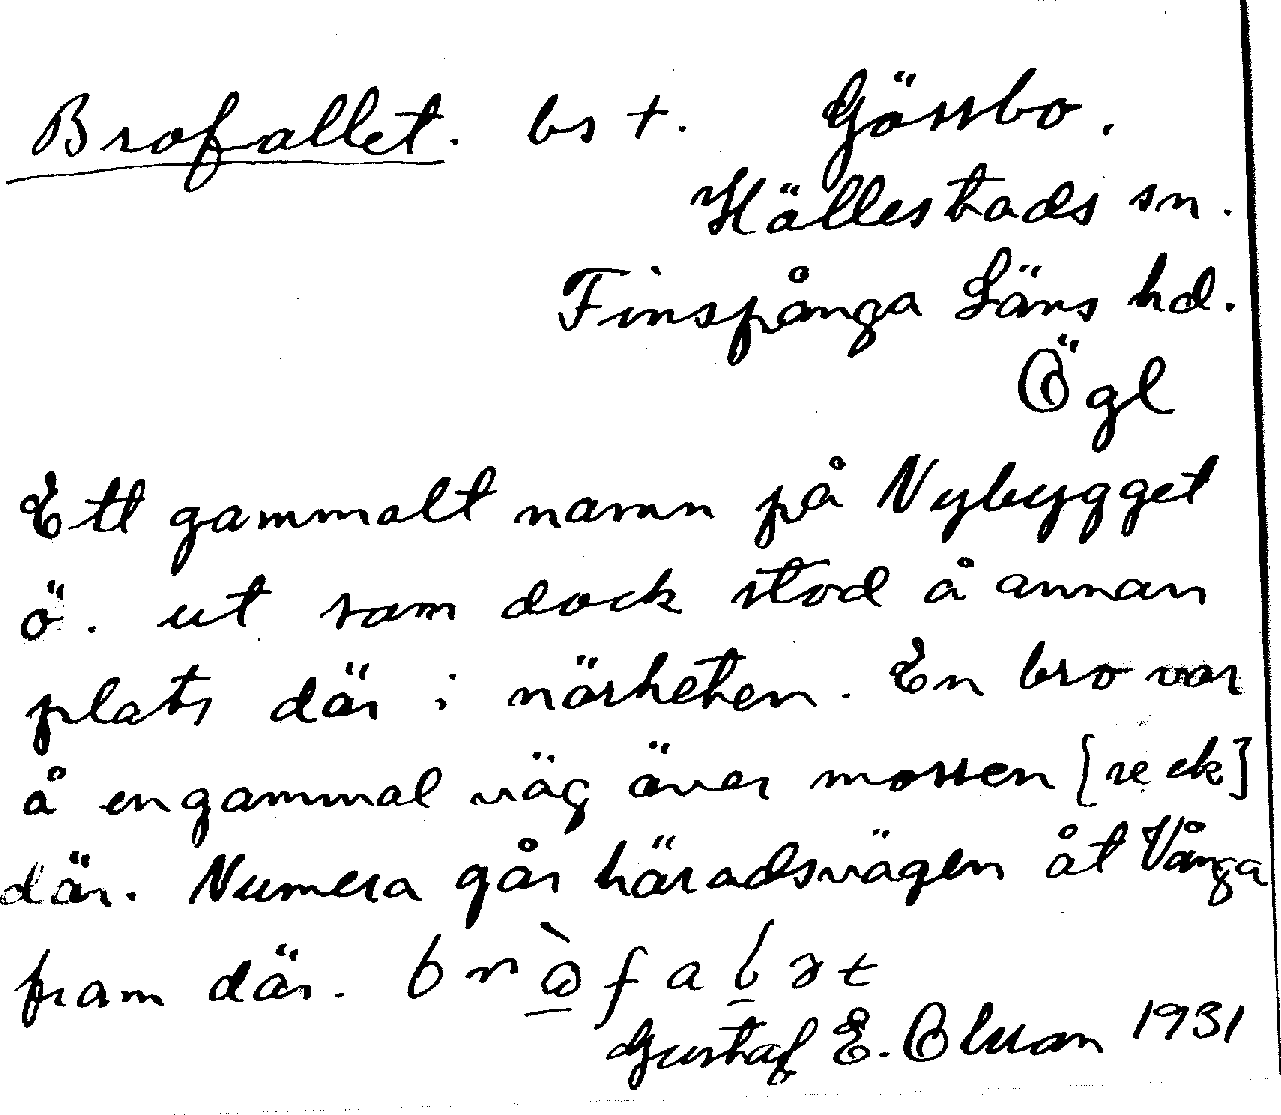 Brofallet. bst. Gössbo.
Hällestads sn.
Finspånga Läns hd.
Ögl
Ett gammalt namn på Nybygget
ö. ut som dock stod å annan
plats där i närheten. En bro var
å en gammal väg över mossen
där. Numera går häradsvägen åt Vånga
fram där.
Gustaf E. Olsson 1931